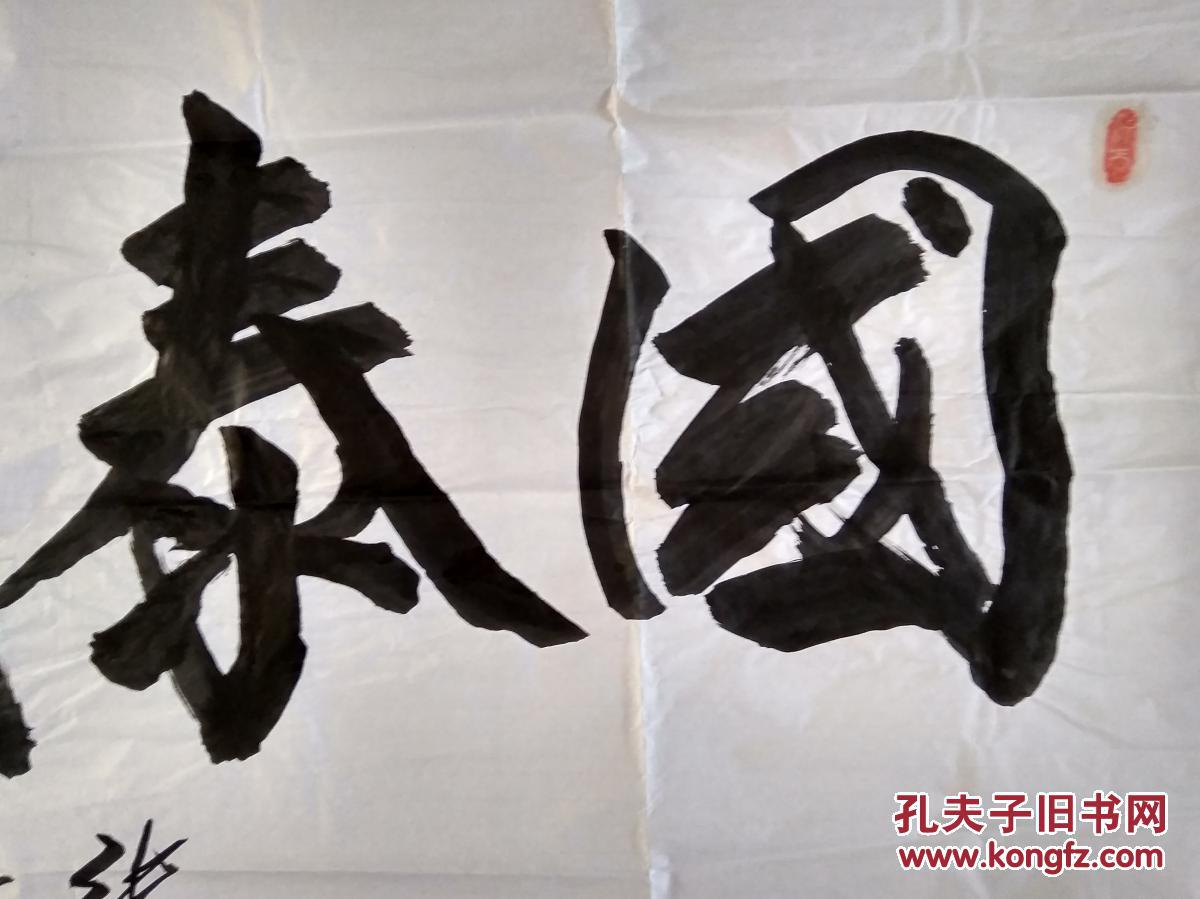 國泰
孔夫子旧书网
www.kongfz.com